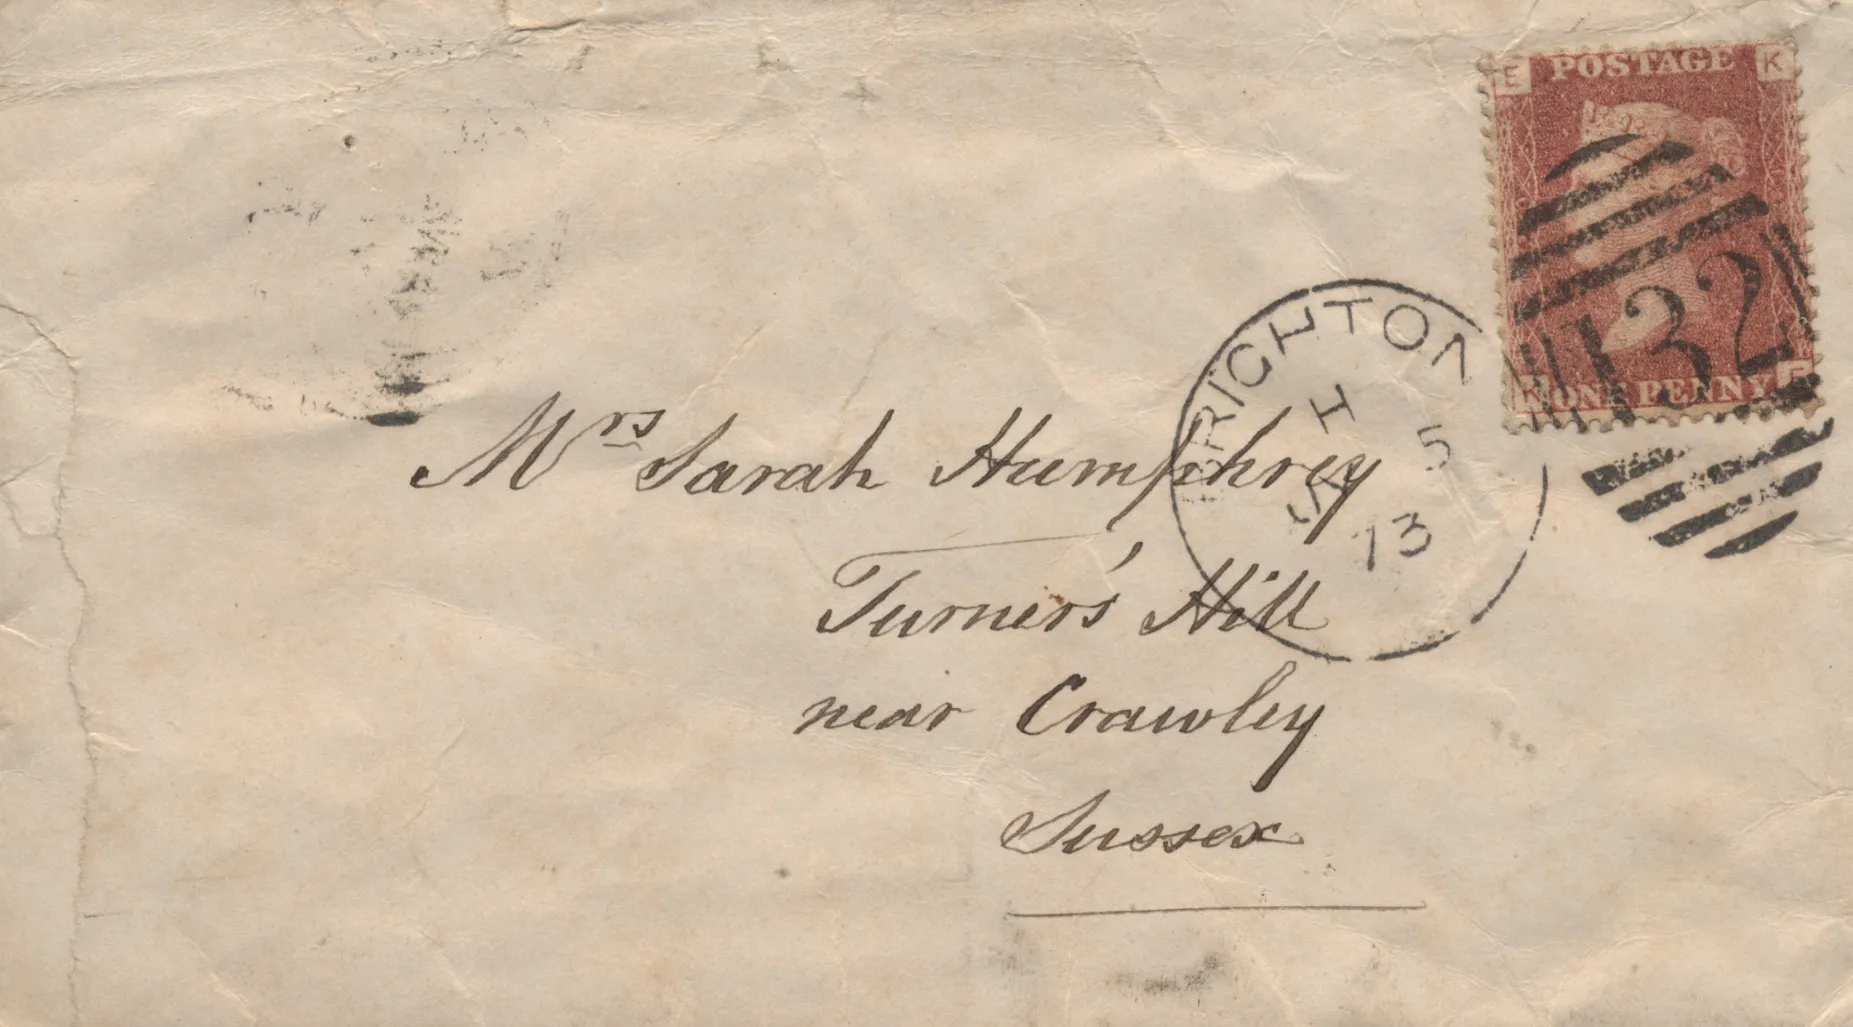 E POSTAGE K
132
K ONE PENNY E
BRIGHTON
H
5
73
Mrs Sarah Humphrey
Turner's Hill
near Crawley
Sussex